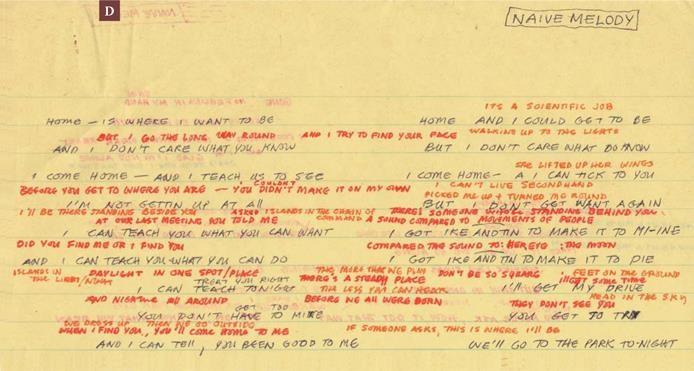 D
NAIVE MELODY
ITS A SCIENTIFIC JOB
HOME — IS WHERE I WANT TO BE
HOME AND I COULD GET TO BE
BUT I GO THE LONG WAY ROUND AND I TRY TO FIND YOUR FACE
WALKING UP TO THE LIGHTS
AND I DON'T CARE WHAT YOU KNOW
BUT I DON'T CARE WHAT DO KNOW
SHE LIFTED UP HER WINGS
I COME HOME — AND I TEACH US TO SEE
I COME HOME - A I CAN TICK TO YOU
COULDN'T
BEFORE YOU GET TO WHERE YOU ARE — YOU DIDN'T MAKE IT ON MY OWN
I CAN'T LIVE SECONDHAND
PICKED ME UP & TURNED ME ROUND
I'M NOT GETTIN UP AT ALL
BUT I DON'T GET WANT AGAIN
I'LL BE THERE STANDING BESIDE YOU
ASKED ISLANDS IN THE CHAIN OF COMMAND
THERE'S SOMEONE STANDING BEHIND YOU
AT OUR LAST MEETING YOU TOLD ME
A SOUND COMPARED TO MOVEMENTS OF PEOPLE
I CAN TEACH YOU WHAT YOU CAN WANT
I GOT IKE AND TIN TO MAKE IT TO MI-INE
DID YOU FIND ME OR I FIND YOU
COMPARED THE SOUND TO: THE MOON
AND I CAN TEACH YOU WHAT YOU CAN DO
I GOT IKE AND TIN TO MAKE IT TO PIE
ISLANDS IN THE
DAYLIGHT IN ONE SPOT/PLACE
THE MORE THAT WE PLAY
DON'T BE SO SQUARE
FEET ON THE GROUND
TREAT YOU RIGHT
THERE'S A STEADY PLACE
I'LL GET SOME TIME
I CAN TEACH TONIGHT
THE LESS YOU CAN HEAR
I'LL GET MY DRIVE
HEAD IN THE SKY
AND NIGHTIME ALL AROUND
BEFORE WE ALL WERE BORN
THEY DON'T SEE YOU
GET TOO
YOU DON'T HAVE TO
YOU GET TO
WE DRESS UP THEN WE GO OUTSIDE
WHEN I FIND YOU, YOU'LL COME HOME TO ME
IF SOMEONE ASKS, THIS IS WHERE I'LL BE
AND I CAN TELL, YOU BEEN GOOD TO ME
WE'LL GO TO THE PARK TO-NIGHT